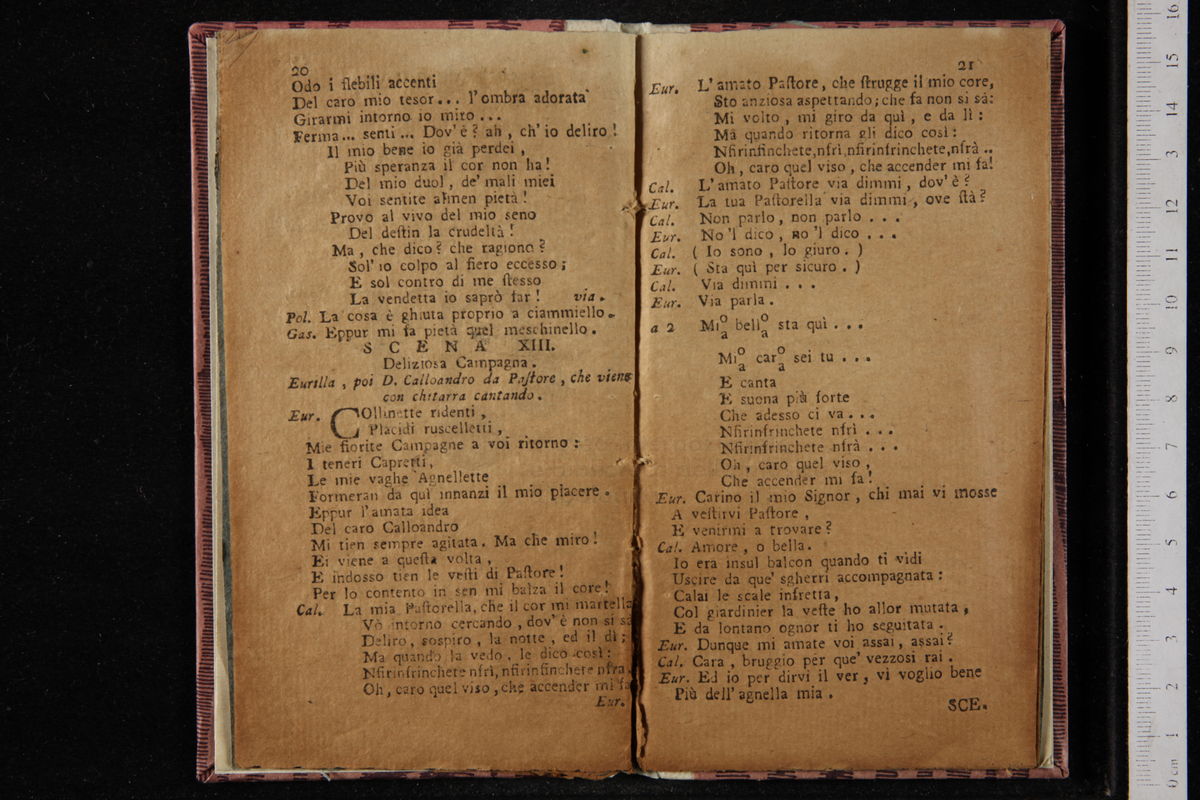 20
Odo i flebili accenti
Del caro mio tesor... l'ombra adorata
Girarmi intorno io miro ...
Ferma... senti... Dov'è? ah, ch'io deliro!
Il mio bene io già perdei,
Più speranza il cor non ha!
Del mio duol, de' mali miei
Voi sentite almen pietà!
Provo al vivo del mio seno
Del deſtin la crudeltà!
Ma, che dico? che ragiono?
Sol' io colpo al fiero eccesso;
E sol contro di me ſtesso
La vendetta io saprò far! via.
Pol. La cosa è ghiuta proprio a ciammiello.
Gas. Eppur mi fa pietà quel meschinello.
SCENA XIII.
Deliziosa Campagna.
Eurilla, poi D. Calloandro da Paſtore, che viene
con chitarra cantando.
Eur. COllinette ridenti,
Placidi ruscelletti,
Mie fiorite Campagne a voi ritorno:
I teneri Capretti,
Le mie vaghe Agnellette
Formeran da quì innanzi il mio piacere.
Eppur l'amata idea
Del caro Calloandro
Mi tien sempre agitata. Ma che miro!
Ei viene a queſta volta,
E indosso tien le veſti di Paſtore!
Per lo contento in sen mi balza il core!
Cal. La mia Paſtorella, che il cor mi martella
Vò intorno cercando, dov'è non si sà
Deliro, sospiro, la notte, ed il dì;
Ma quando la vedo, le dico così:
Nfirinfrinchete nfrì, nfirinfinchete nfra
Oh, caro quel viso, che accender mi fa
Eur.
21
Eur. L'amato Paſtore, che ſtrugge il mio core,
Sto anziosa aspettando; che fa non si sà:
Mi volto, mi giro da quì, e da lì:
Mà quando ritorna gli dico così:
Nfirinfinchete, nfrì, nfirinfrinchete, nfrà ..
Oh, caro quel viso, che accender mi fa!
Cal. L'amato Paſtore via dimmi, dov'è?
Eur. La tua Paſtorella via dimmi, ove ſtà?
Cal. Non parlo, non parlo ...
Eur. No'l dico, no'l dico ...
Cal. (Io sono, lo giuro.)
Eur. (Sta quì per sicuro.)
Cal. Via dimmi ...
Eur. Via parla.
a 2 Mi o/a bell o/a sta quì ...
Mi o/a car o/a sei tu ...
E canta
E suona più forte
Che adesso ci va ...
Nfirinfrinchete nfrì ...
Nfirinfrinchete nfrà ...
Oh, caro quel viso,
Che accender mi fa!
Eur. Carino il mio Signor, chi mai vi mosse
A veſtirvi Paſtore,
E venirmi a trovare?
Cal. Amore, o bella.
Io era insul balcon quando ti vidi
Uscire da que' sgherri accompagnata:
Calai le scale infretta,
Col giardinier la veſte ho allor mutata,
E da lontano ognor ti ho seguitata.
Eur. Dunque mi amate voi assai, assai?
Cal. Cara, bruggio per que' vezzosi rai.
Eur. Ed io per dirvi il ver, vi voglio bene
Più dell'agnella mia.
SCE.
16
15
14
13
12
11
10
9
8
7
6
5
4
3
2
1
0 cm